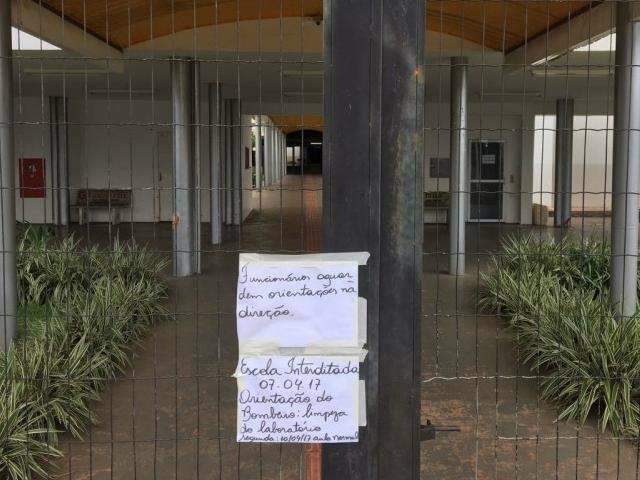 Funcionários aguar
dem orientações na
direção.
Escola Interditada
07.04.17
Orientação do
Bombeiro: limpeza
do laboratório
Segunda: 10/04/17 aula normal